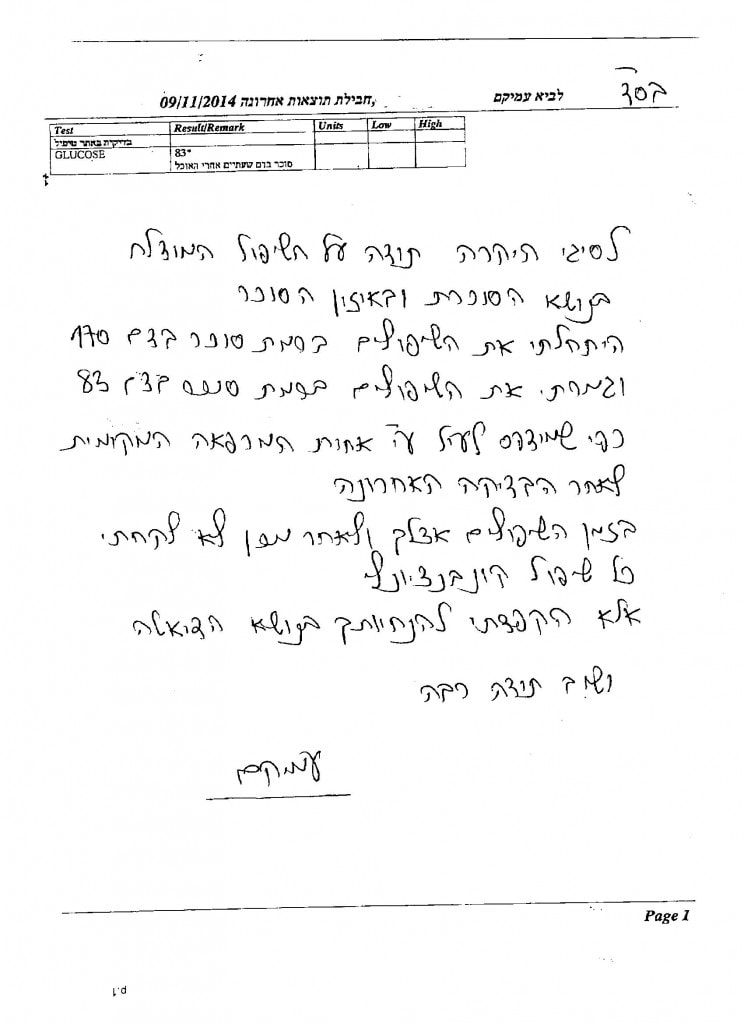 בסד
לביא עמיקם
חבילת תוצאות אחרונה 09/11/2014,
Test Result/Remark Units Low High
בדיקות באתר טיפול
GLUCOSE 83*
סוכר בדם שעתיים אחרי האוכל
לסיגי היקרה תודה על הטיפול המוצלח
בנושא הסוכרת ובאיזון הסוכר
היתחלתי את הטיפולים ברמת סוכר בדם 170
וגמרתי את הטיפולים ברמת סוכר בדם 83
כפי שמודפס לעיל ע"י אחות המרפאה המקומית
לאחר הבדיקה האחרונה
בזמן הטיפולים אצלך ולאחר מכן לא לקחתי
כל טיפול קונבנציונלי
אלא הקפדתי להנחיותך בנושא הדיאטה
ושוב תודה רבה
עמיקם
Page 1
p.1